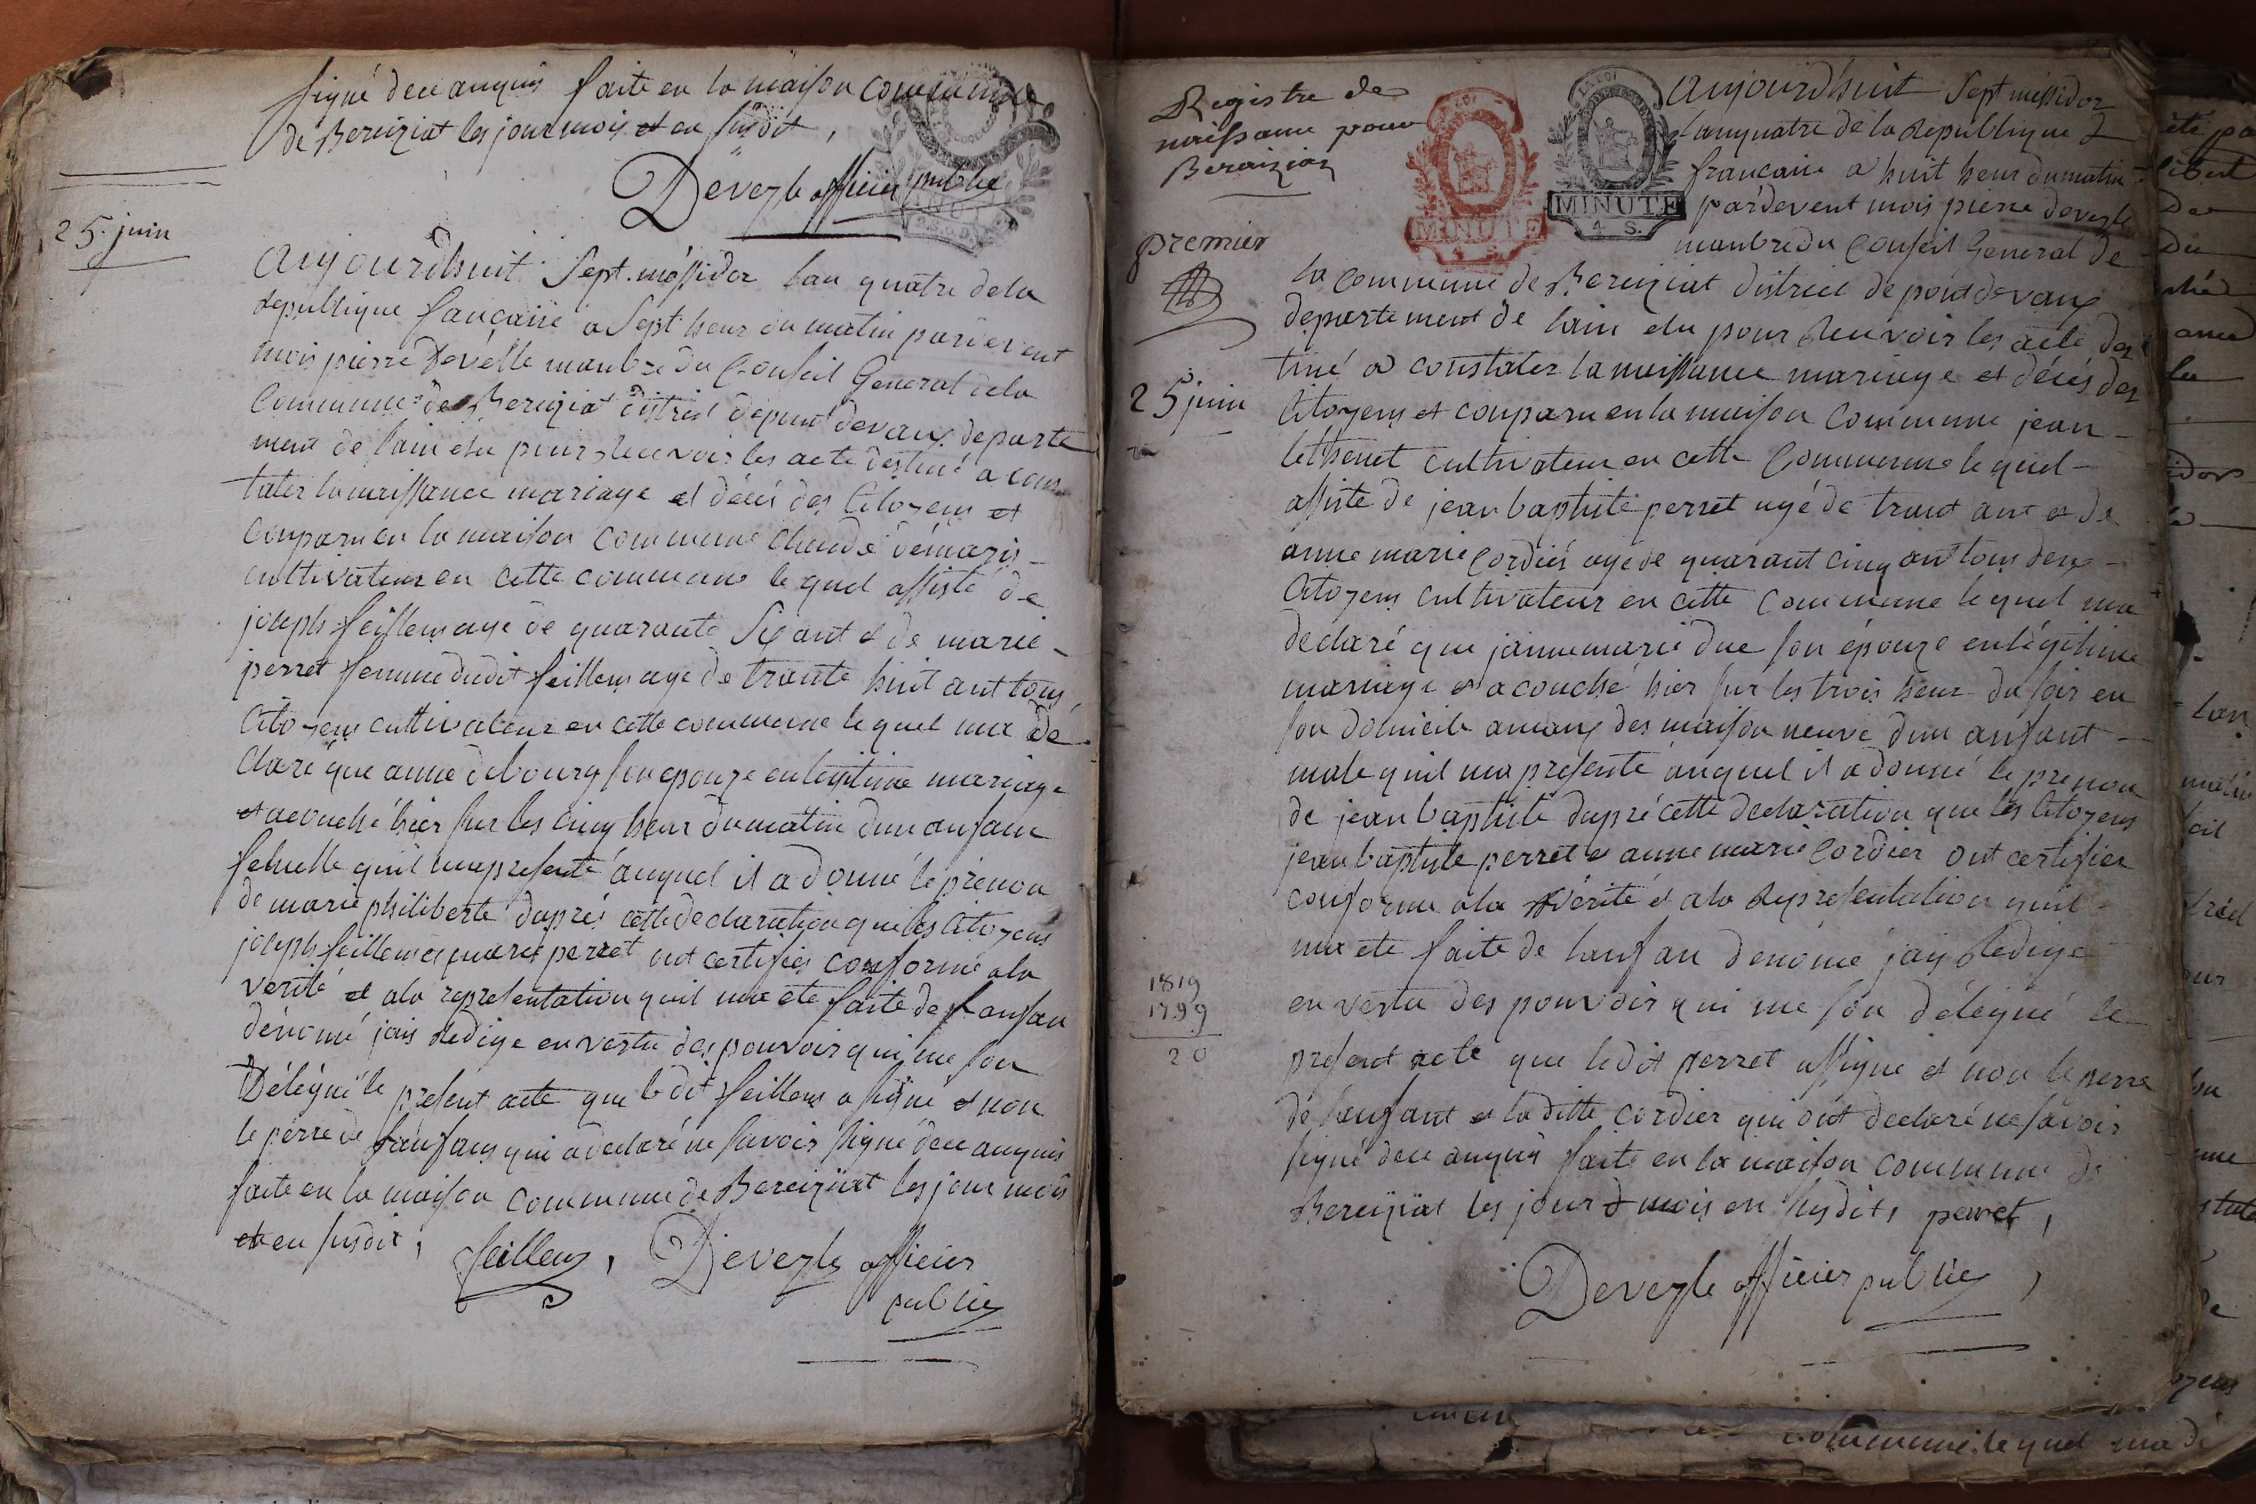 signé dece anquis faite en la maison commune
de Bereiziat les jour mois et en susdit,
Deveyle officier public
25 juin
Aujourdhuit Sept messidor lan quatre dela
Republique francaise a Sept heur du matin pardevent
mois pierre Devesle manbre du Conseil General dela
Commune de Bereiziat district depont devaux departe
ment de lain elu pour Recevoir les acte destiné a cons
tater la naissance mariage et décés des Citoyens et
conparu en la maison commune Claude démaris
cultivateur en cette commune le quel assisté de
joseph feillens age de quarante Six ant et de marie
perret femme dudit feillens age de trante huit ant tous
Citoyens cultivateur en cette commune le quel ma dé
claré que anne debourg son epouze en legitime mariage
et acouché hier sur les cinq heur du matin dun anfant
femelle quil ma presenté auquel il a donné le prénon
de marie philiberte daprés cette declaration que les Citoyens
joseph feillens et marie perret ont certifier conforme ala
verité et ala representation quil ma ete faite de lanfan
dénomé jais Redige en vertu des pouvoir qui me son
Délégué le présent acte que le dit feillens a signé et non
le perre de lanfans qui a declaré ne savoir signé dece anquis
faite en la maison commune de Bereiziat les jour mois
et en susdit, feillens, Deveyle officier
public
Registre de
naissance pour
Bereiziat
MINUTE
4 S.
MINUTE
4 S.
Aujourdhuit Sept messidor
lanquatre de la Republique
francaise a huit heur dumatin
pardevent mois pierre deveyle
manbre du Conseil General de
premier
la commune de Bereiziat district de pont de vaux
departement de lain elu pour Recevoir les acte des
tiné a constater la naissance mariage et décés des
25 juin
Citoyens et conparu en la maison commune jean
lethenet cultivateur en cette Commune le quel
assiste de jean baptiste perret agé de trant ant et de
anne marie Cordier agé de quarant cinq ant tous deux
Citoyens cultivateur en cette Commune le quel ma
declaré que jannemarie due son épouze en légitime
mariage et a couché hier sur les trois heur du soir en
son domicile amang des maison neuve dun anfant
male quil ma presenté auquel il a donné le prenon
de jean baptiste daprè cette declaration que les Citoyens
jean baptiste perret et anne marie Cordier ont certifier
conforme ala vérité et ala Representation quil
ma ete faite de lanfan dénomé jais Redige
1819
1799
20
en vertu des pouvoir qui me son délégué le
présent acte que ledit perret assigné et non le perre
de lanfant et la ditte cordier qui ont declaré ne savoir
signé dece anquis faite en la maison commune de
Bereiziat les jour et mois en susdits perret,
Deveyle officier public,
commune le quel ma dé